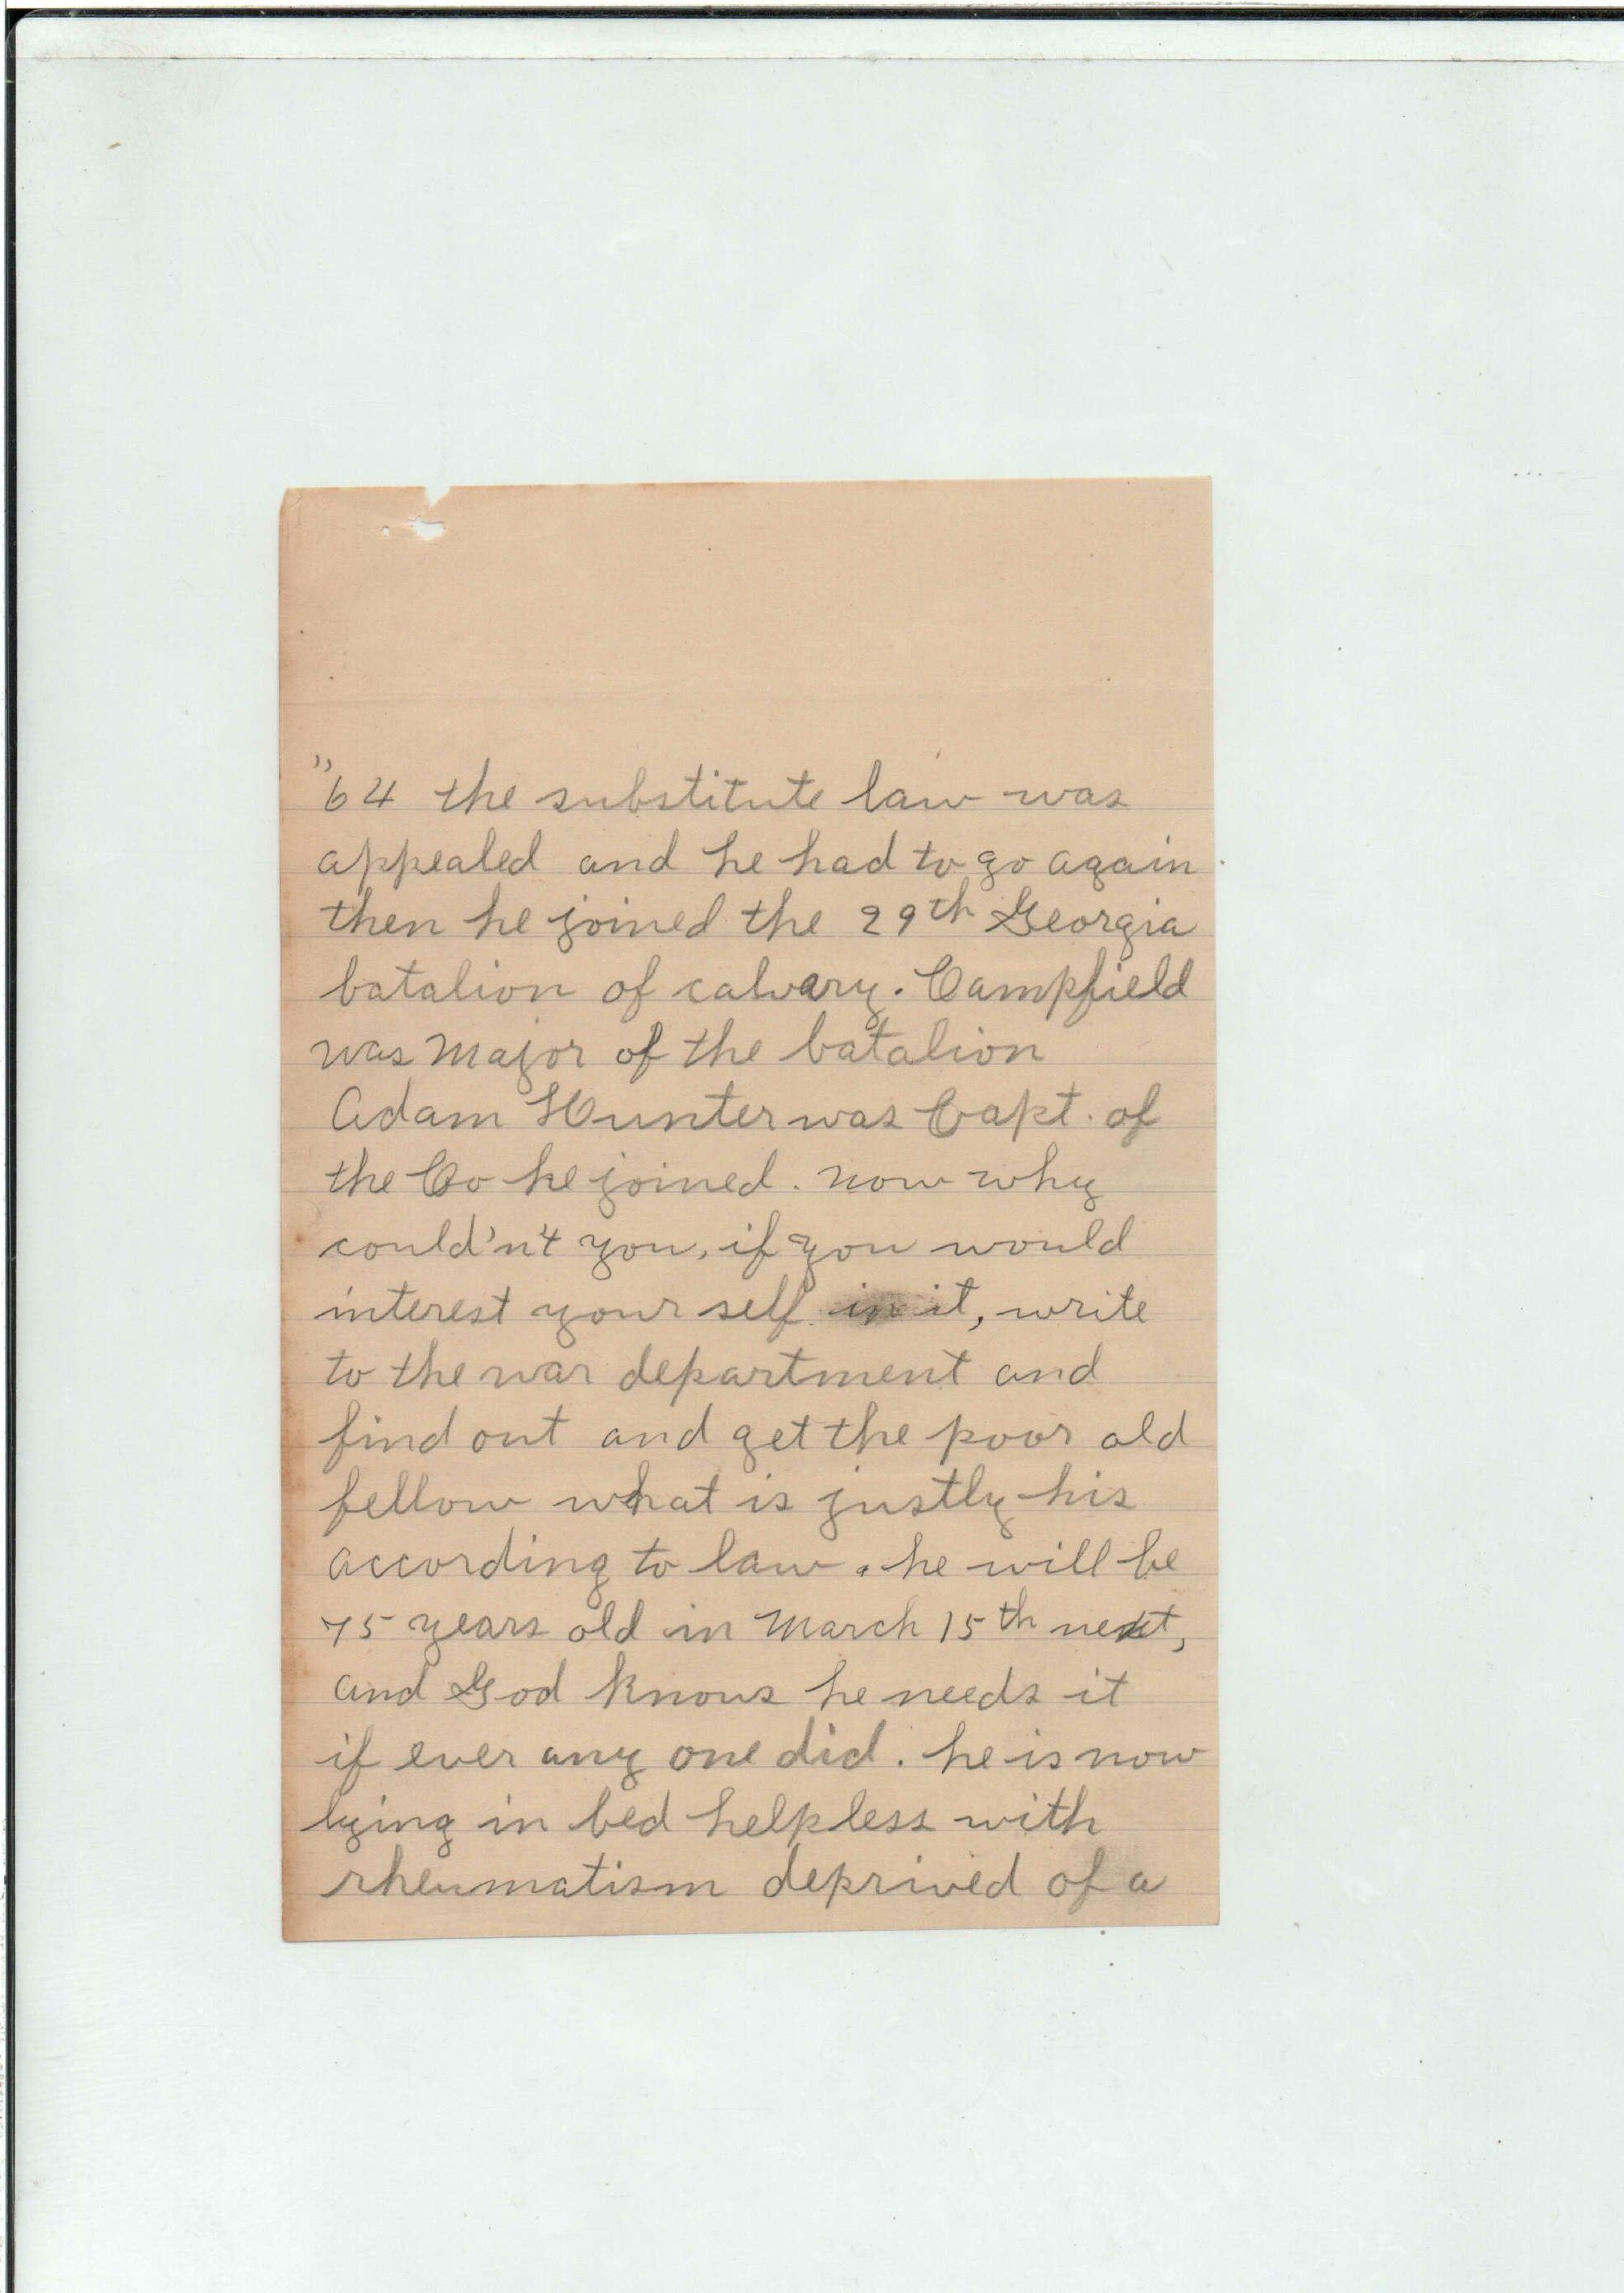 "64 the substitute law was
appealed and he had to go again
then he joined the 29th Georgia
batalion of calvary. Campfield
was Major of the batalion
Adam Hunter was Capt. of
the Co he joined. now why
could'n't you, if you would
interest your self in it, write
to the war department and
find out and get the poor old
fellow what is justly his
according to law. he will be
75 years old in March 15th next,
and God knows he needs it
if ever any one did. he is now
lying in bed helpless with
rheumatism deprived of a